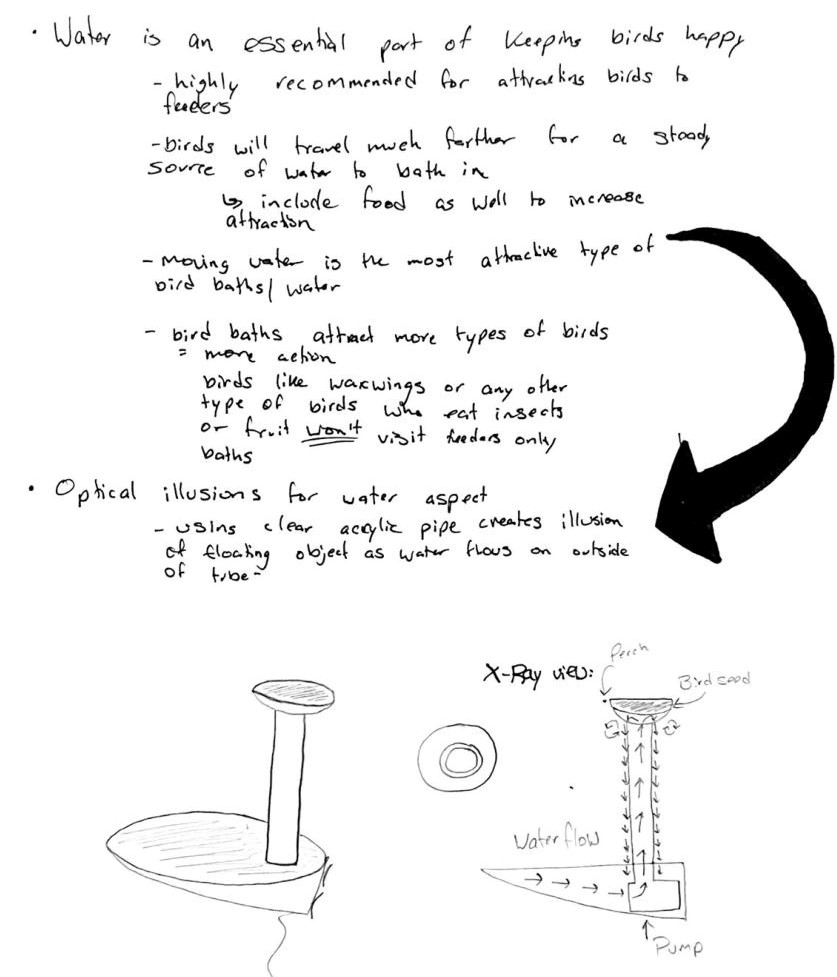 • Water is an essential part of keeping birds happy
- highly recommended for attracting birds to
feeders
- birds will travel much farther for a steady
source of water to bath in
↳ include food as well to increase
attraction
- Moving water is the most attractive type of
bird baths/water
- bird baths attract more types of birds
= more action
birds like waxwings or any other
type of birds who eat insects
or fruit won't visit feeders only
baths
• Optical illusions for water aspect
- using clear acrylic pipe creates illusion
of floating object as water flows on outside
of tube-
Perch
X-Ray view:
Bird seed
Water flow
Pump